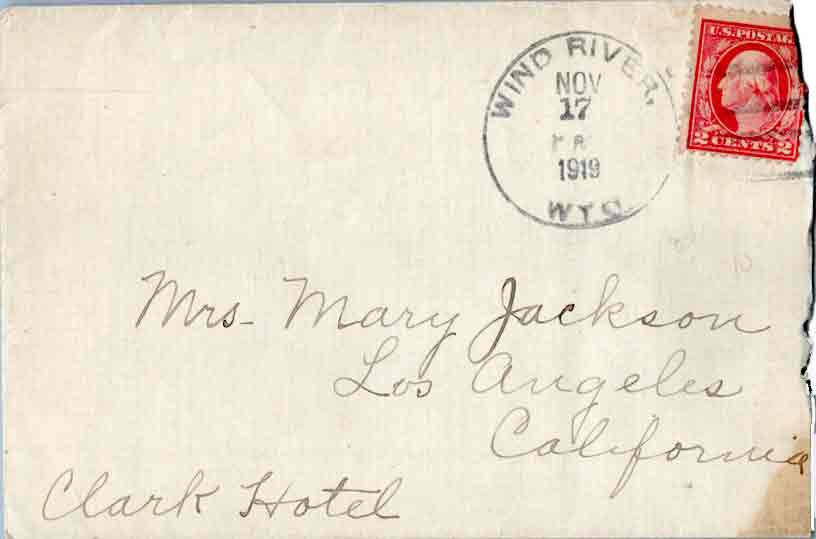 WIND RIVER,
NOV
17
1919
WYO.
U.S. POSTAG
2 CENTS 2
Mrs. Mary Jackson
Los Angeles
California
Clark Hotel